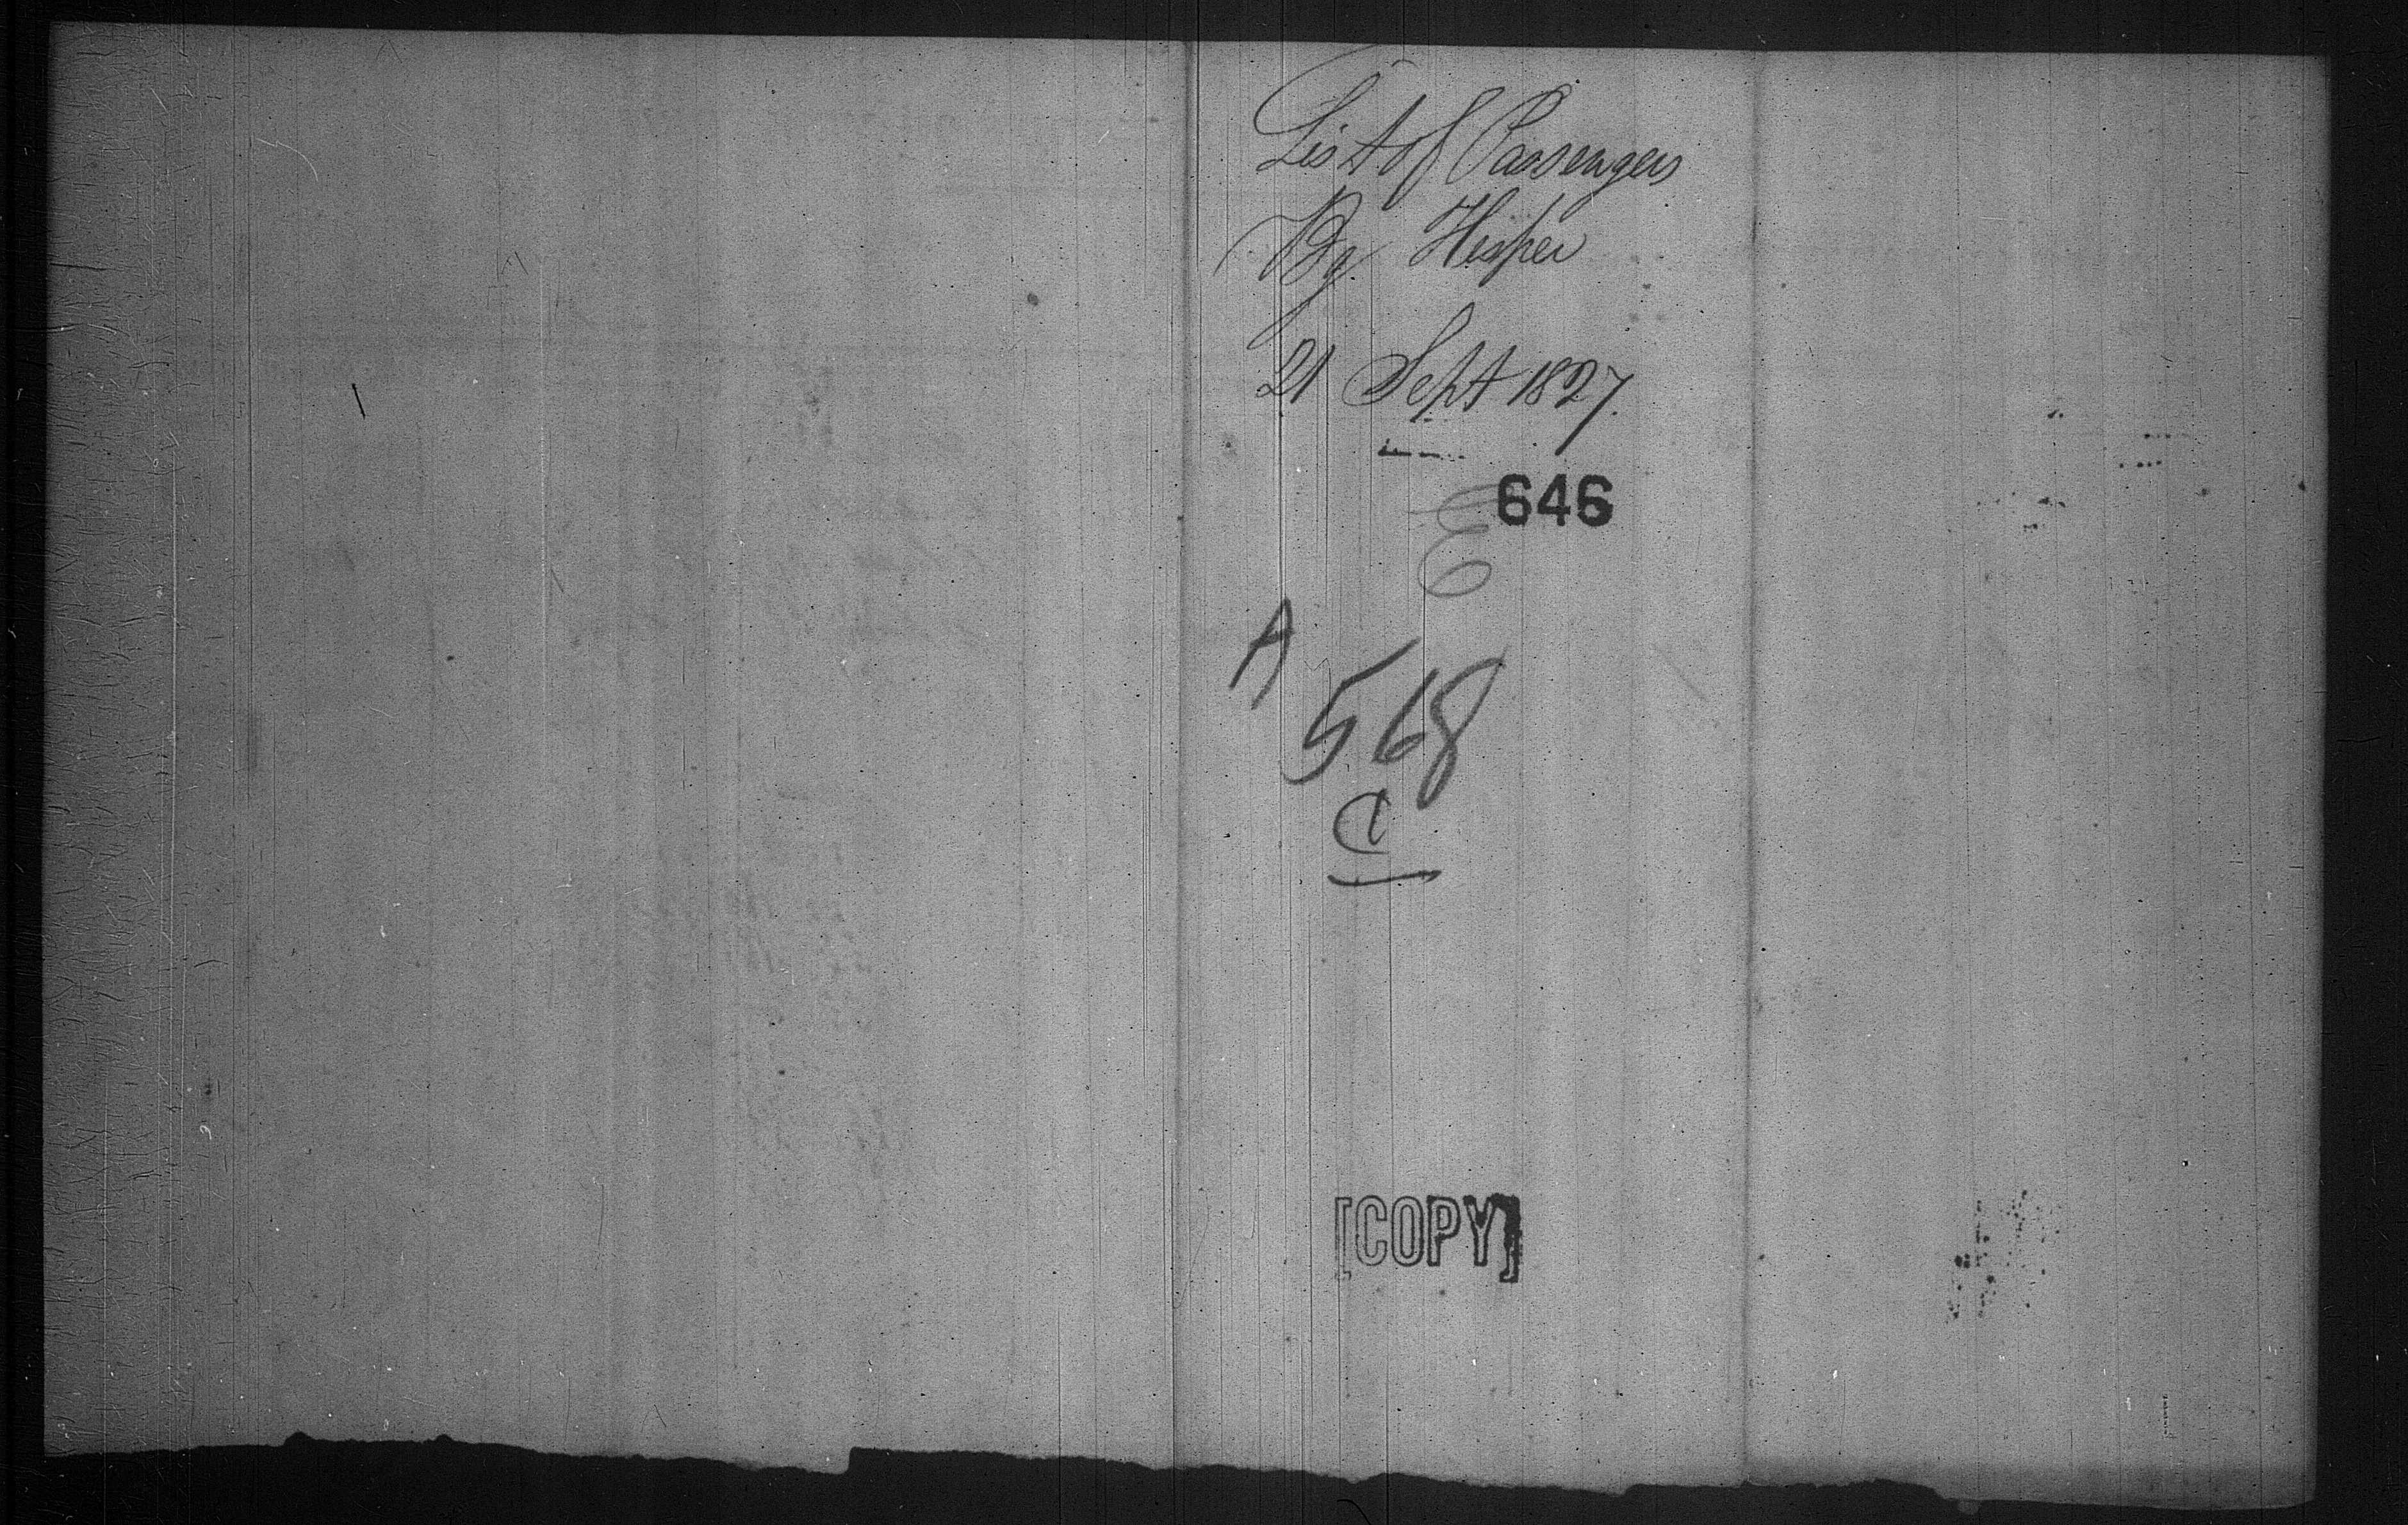 List of Passengers
Bg Hesper
21 Sept 1827.
646
E
A
568
[COPY]